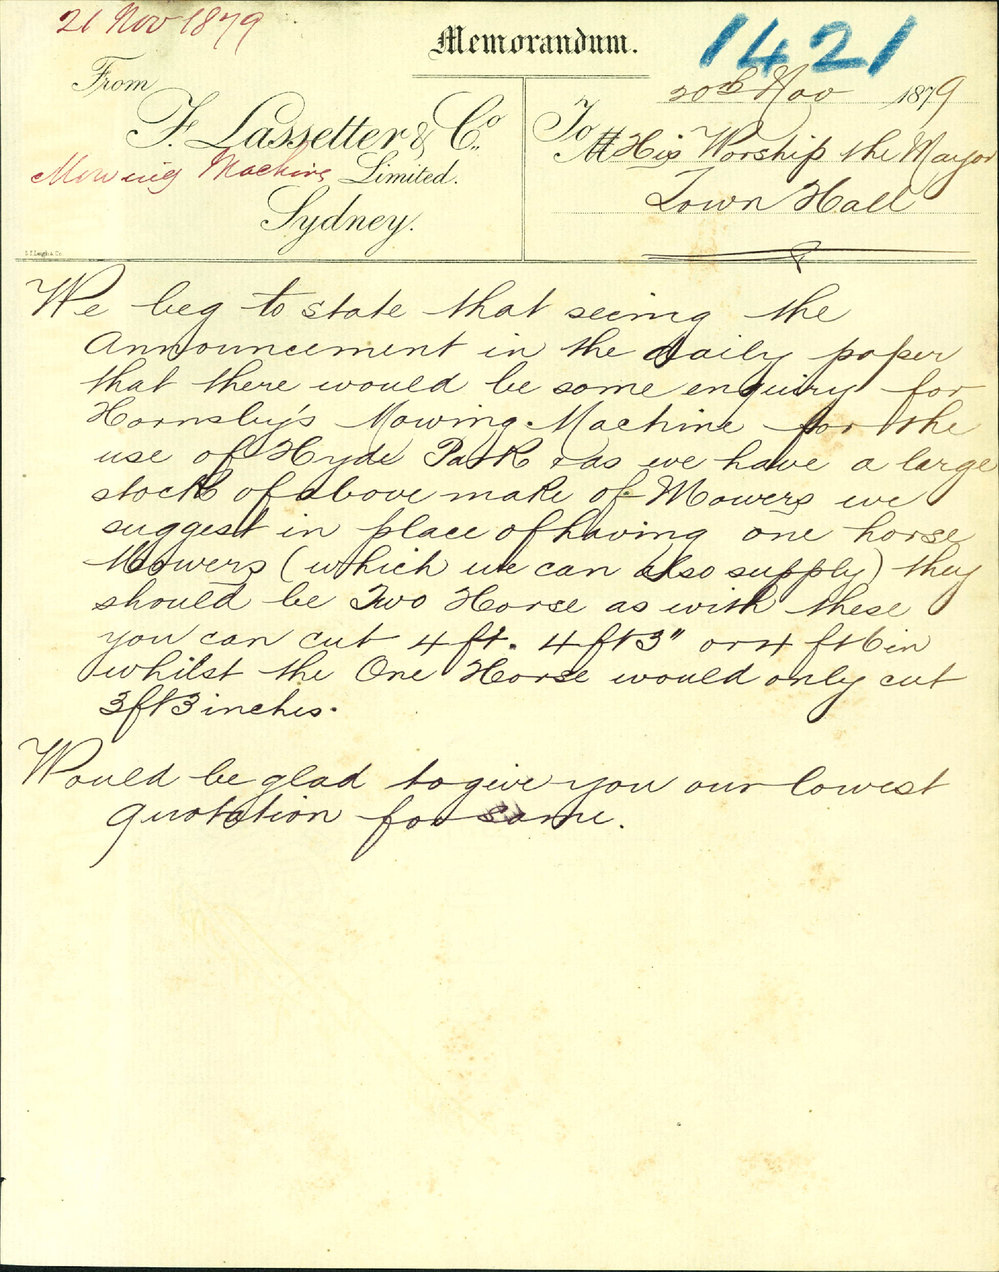 21 Nov 1879
Memorandum.
1421
20th Nov 1879
From
F. Lassetter & Co.
Limited.
Sydney.
Mowing Machine
S.T. Leigh & Co.
To
M His Worship the Mayor
Town Hall
We beg to state that seeing the
Announcement in the daily paper
that there would be some enquiry for
Hornsby's Mowing Machine for the
use of Hyde Park & as we have a large
stock of above make of Mowers we
suggest in place of having one horse
Mowers (which we can also supply) they
should be Two Horse as with these
you can cut 4 ft. 4 ft 3" or 4 ft 6 in
whilst the One Horse would only cut
3 ft 3 inches.
Would be glad to give you our lowest
quotation for same.